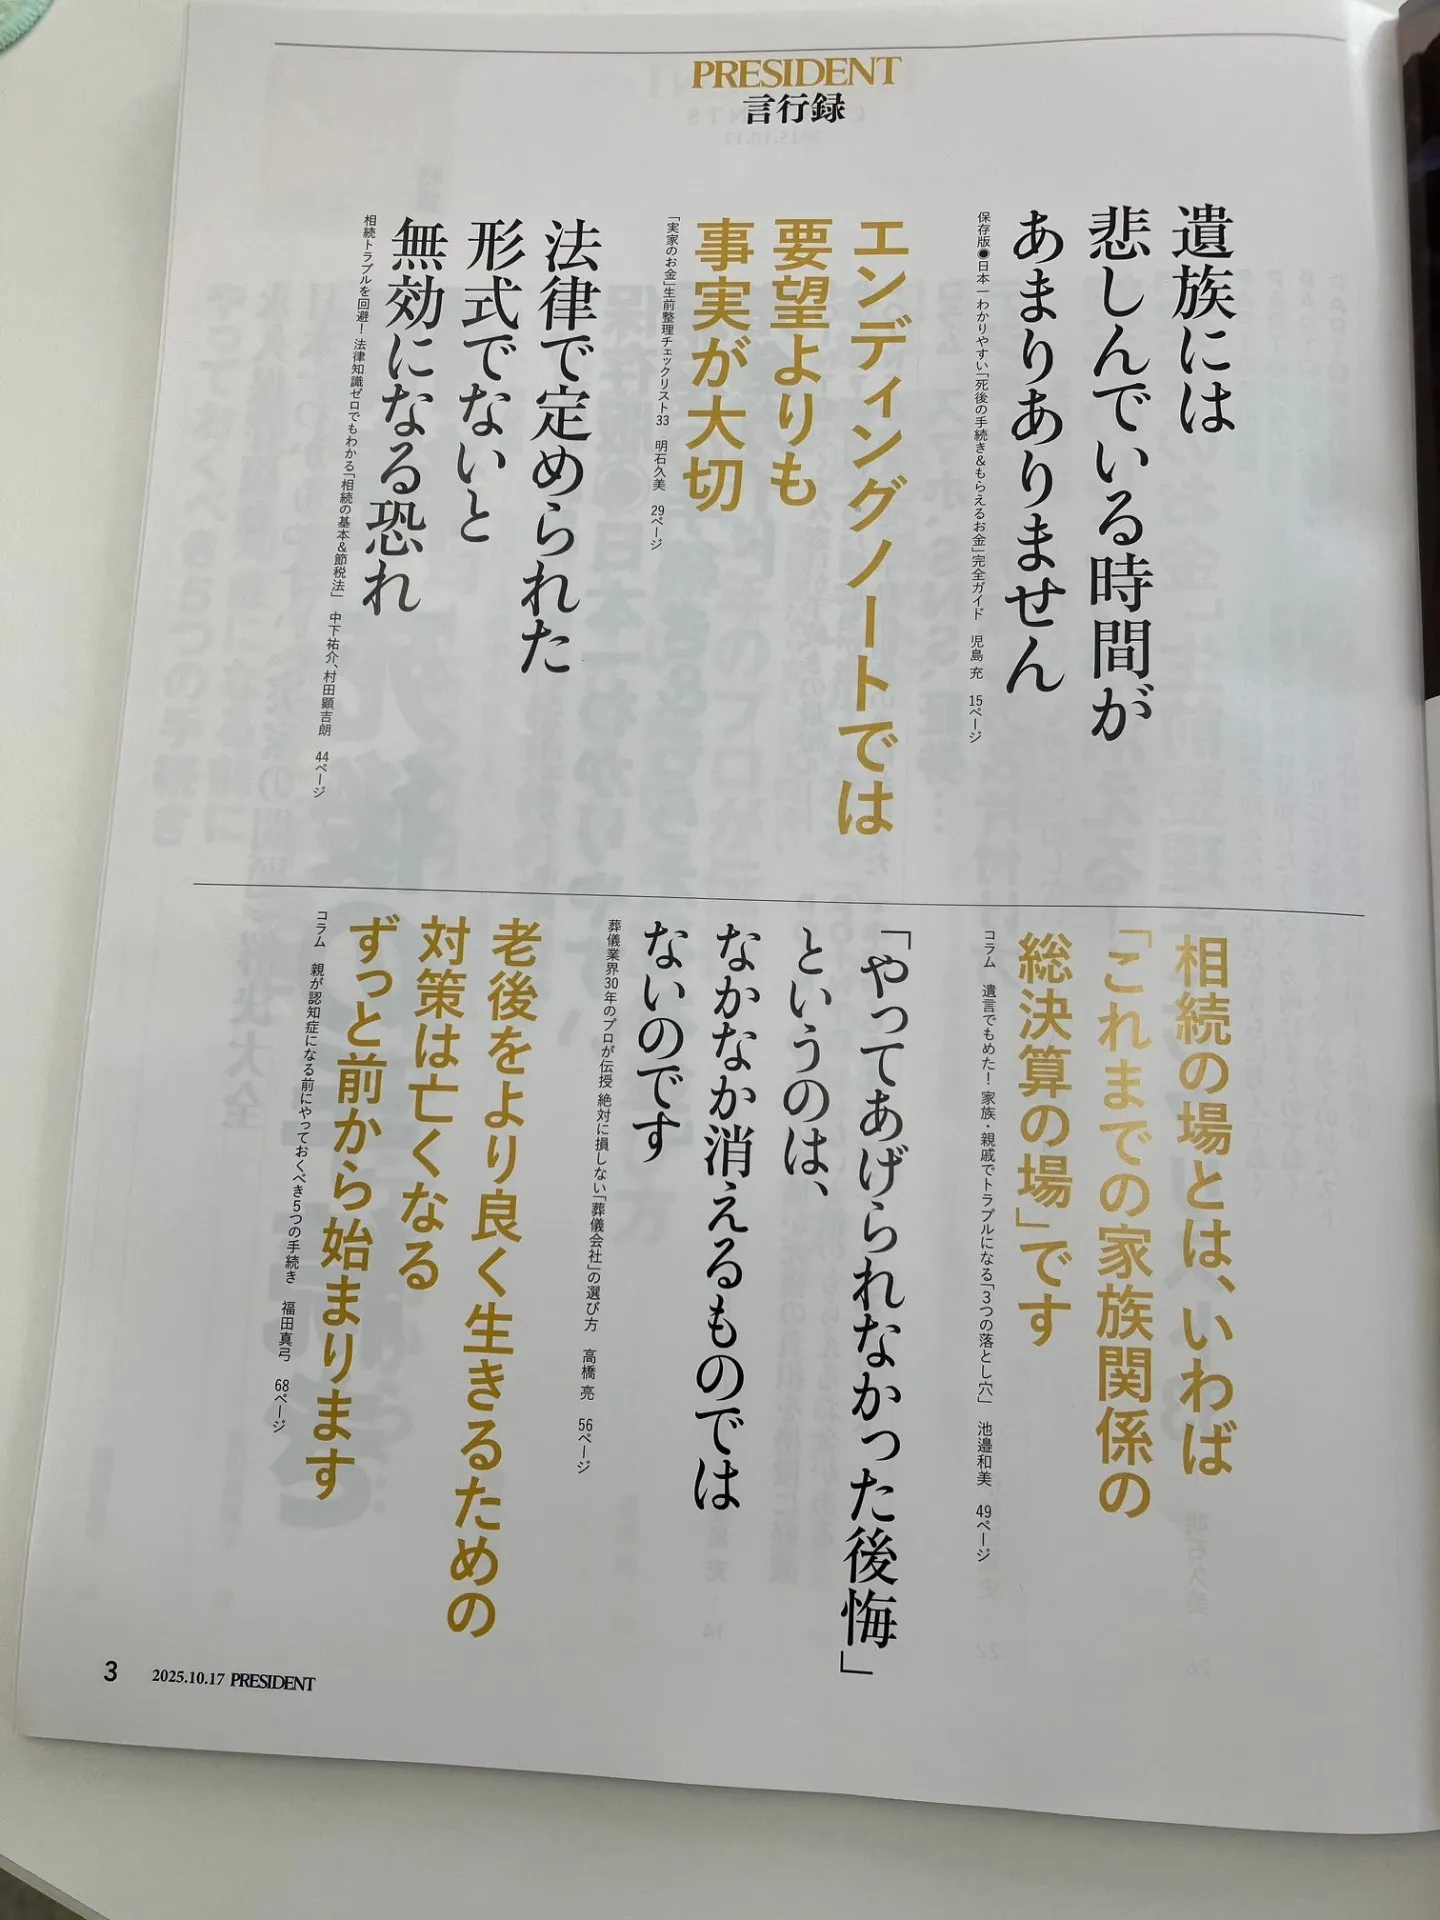 PRESIDENT
言行録
遺族には
悲しんでいる時間が
あまりありません
保存版●日本一わかりやすい「死後の手続き&もらえるお金」完全ガイド 児島 充 15ページ
エンディングノートでは
要望よりも
事実が大切
「実家のお金」生前整理チェックリスト33 明石久美 29ページ
法律で定められた
形式でないと
無効になる恐れ
相続トラブルを回避！ 法律知識ゼロでもわかる「相続の基本&節税法」 中下祐介、村田顕吉朗 44ページ
相続の場とは、いわば
「これまでの家族関係の
総決算の場」です
コラム 遺言でもめた！ 家族・親戚でトラブルになる「3つの落とし穴」 池邉和美 49ページ
「やってあげられなかった後悔」
というのは、
なかなか消えるものでは
ないのです
葬儀業界30年のプロが伝授 絶対に損しない「葬儀会社」の選び方 高橋 亮 56ページ
老後をより良く生きるための
対策は亡くなる
ずっと前から始まります
コラム 親が認知症になる前にやっておくべき5つの手続き 福田真弓 68ページ
3 2025.10.17 PRESIDENT